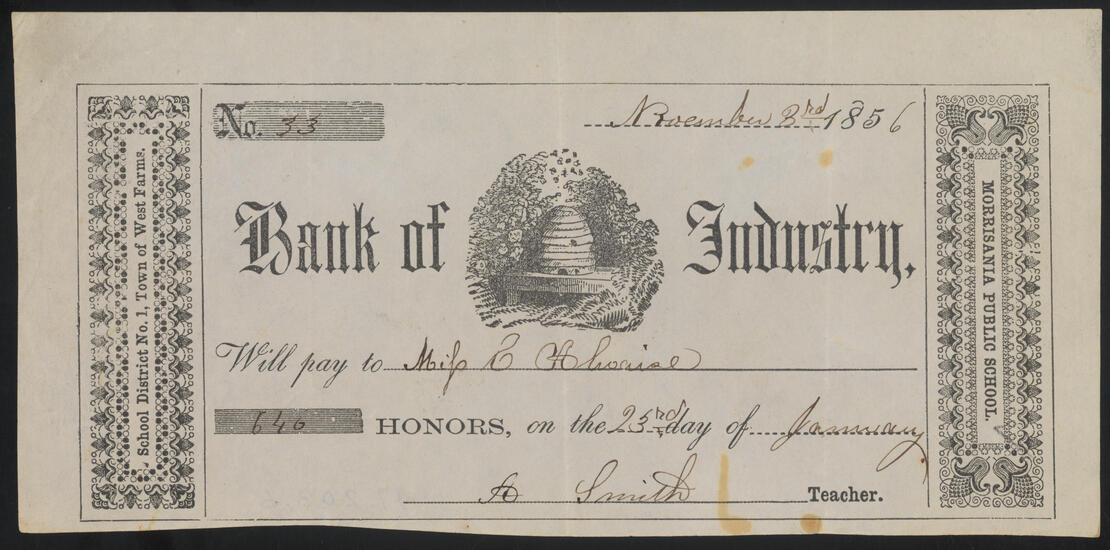 School District No. 1, Town of West Farms.
No. 33
November 3rd 1856
Bank of Industry,
Will pay to Miss E
646 HONORS, on the 23rd day of January
A Smith Teacher.
MORRISANIA PUBLIC SCHOOL.